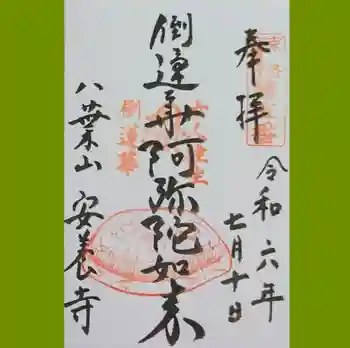 奉拝
令和六年
七月十日
倒蓮華阿弥陀如来
倒蓮華
八葉山 安養寺